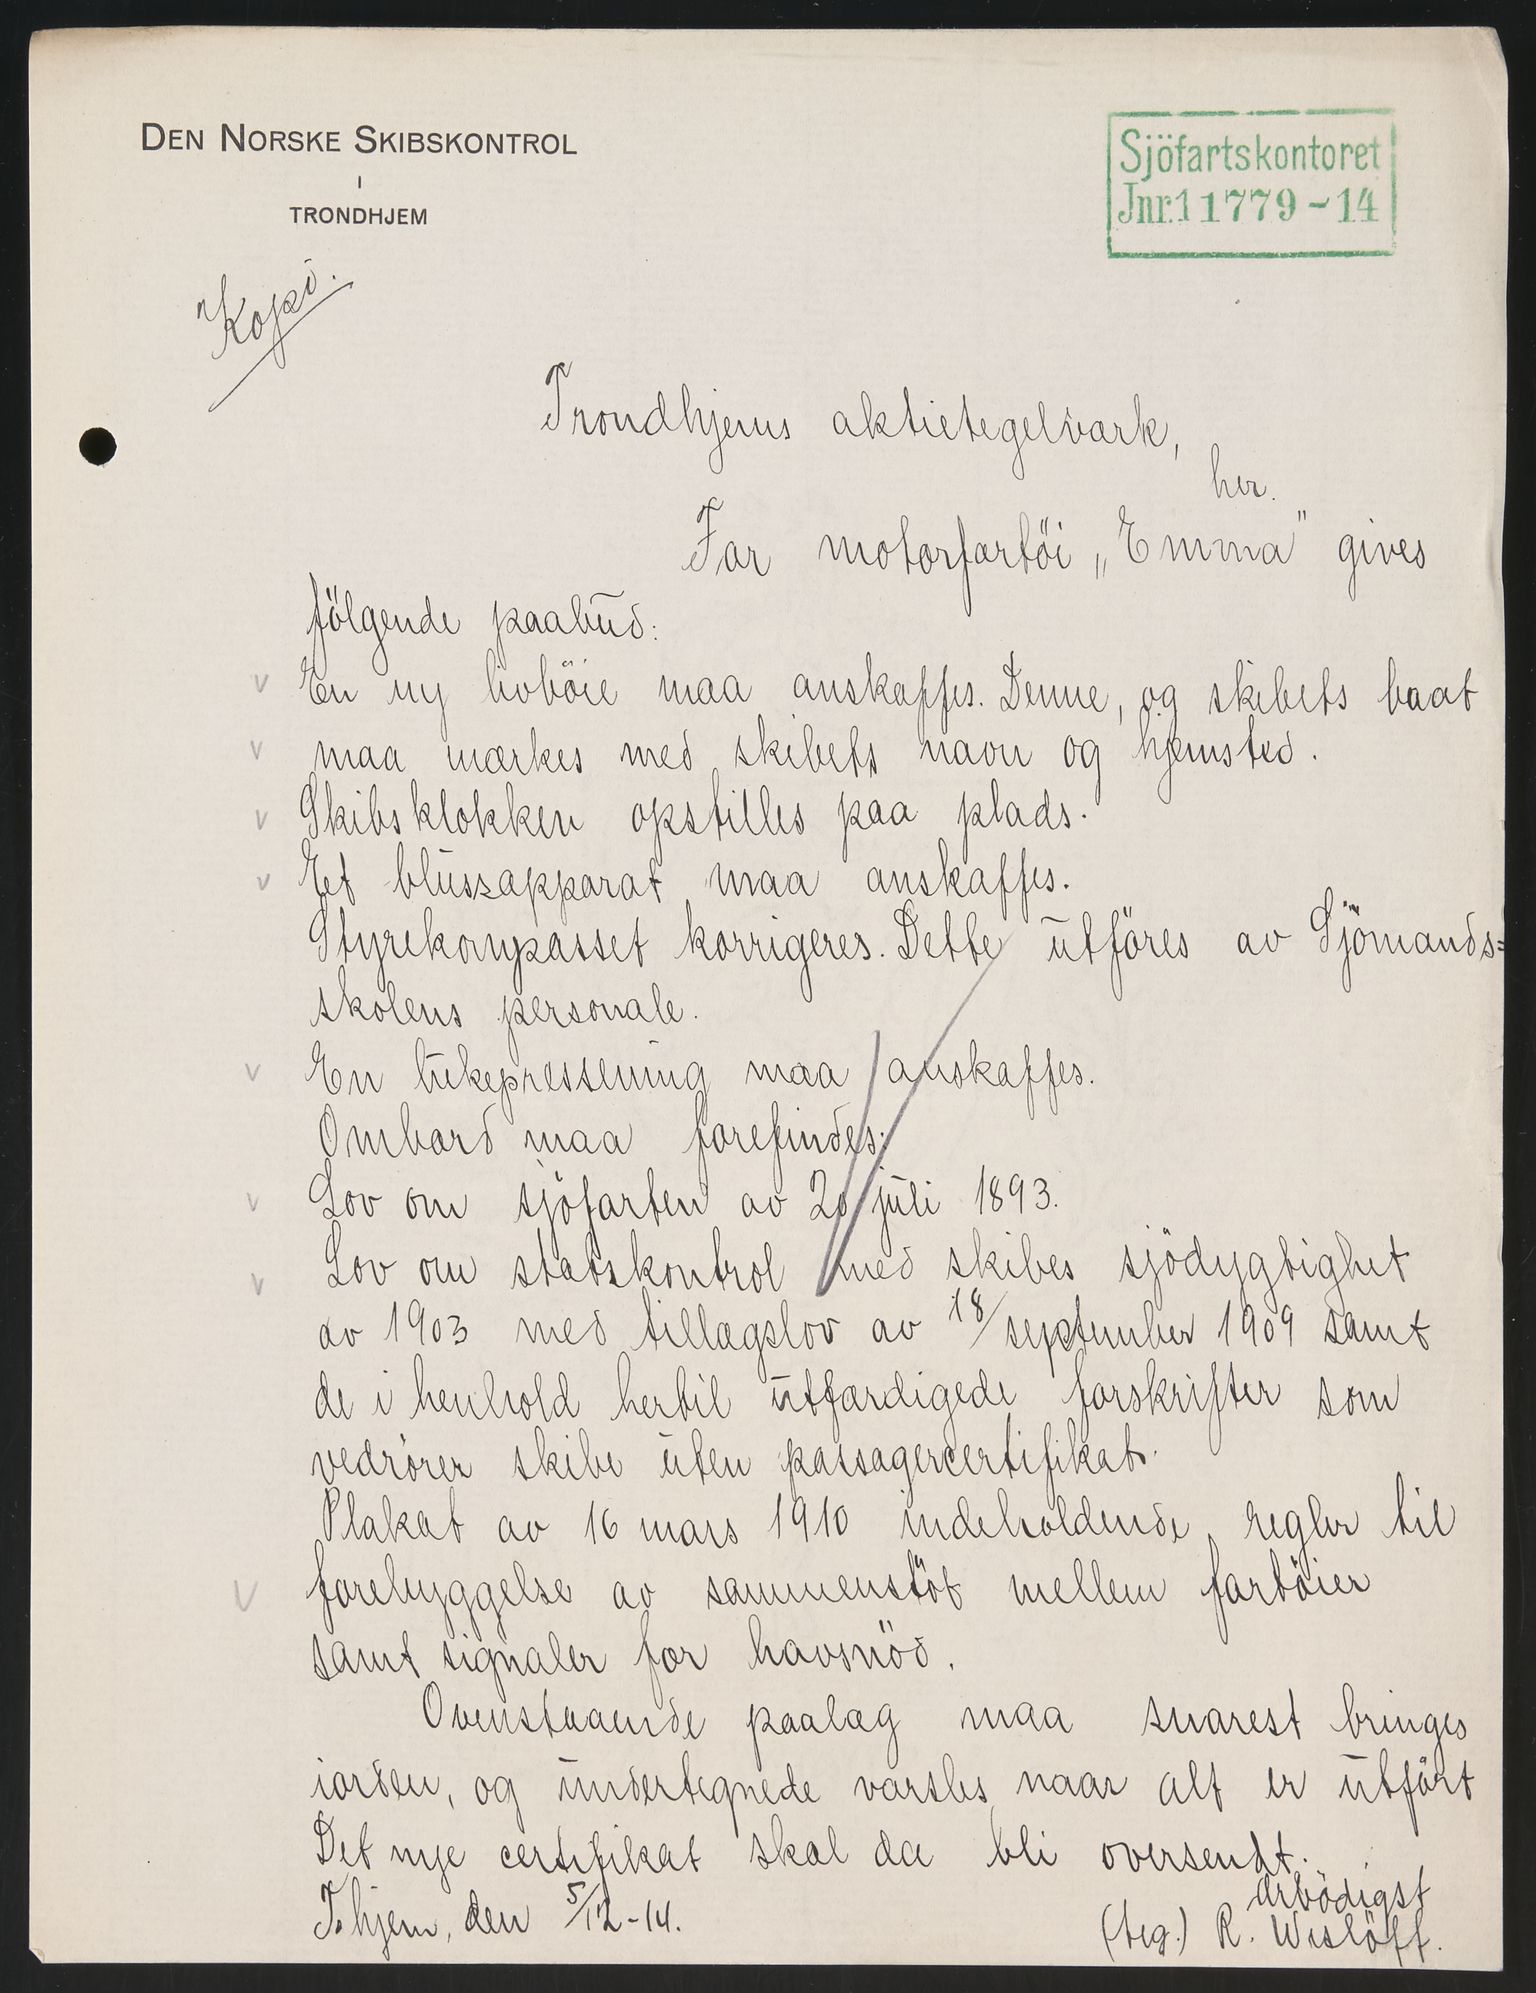 DEN NORSKE SKIBSKONTROL
I
TRONDHJEM
Sjöfartskontoret
Jnr.11779-14
Kopi.
Trondhjems aktietegelværk,
her.
For motorfartöi „Emma" gives
fölgende paabud:
v En ny livböie maa anskaffes. Denne, og skibets baat
v maa mærkes med skibets navn og hjemsted.
v Skibsklokken opstilles paa plads.
v Et blussapparat maa anskaffes.
Styrekompasset korrigeres. Dette utföres av Sjömands=
skolens personale.
v En lukepressening maa anskaffes.
Ombord maa forefindes:
v Lov om sjöfarten av 20 juli 1893.
v Lov om statskontrol med skibes sjödygtighet
av 1903 med tillægslov av 18/september 1909 samt
de i henhold hertil utfærdigede forskrifter som
vedrörer skibe uten passagercertifikat.
Plakat av 16 mars 1910 indeholdende regler til
v forebyggelse av sammenstöt mellem fartöier
samt signaler for havsnöd.
Ovenstaaende paalæg maa snarest bringes
iorden, og undertegnede varsles naar alt er utfört
Det nye certifikat skal da bli oversendt.
T.hjem, den 5/12-14.
Ærbödigst
(teg.) R. Wislöff.